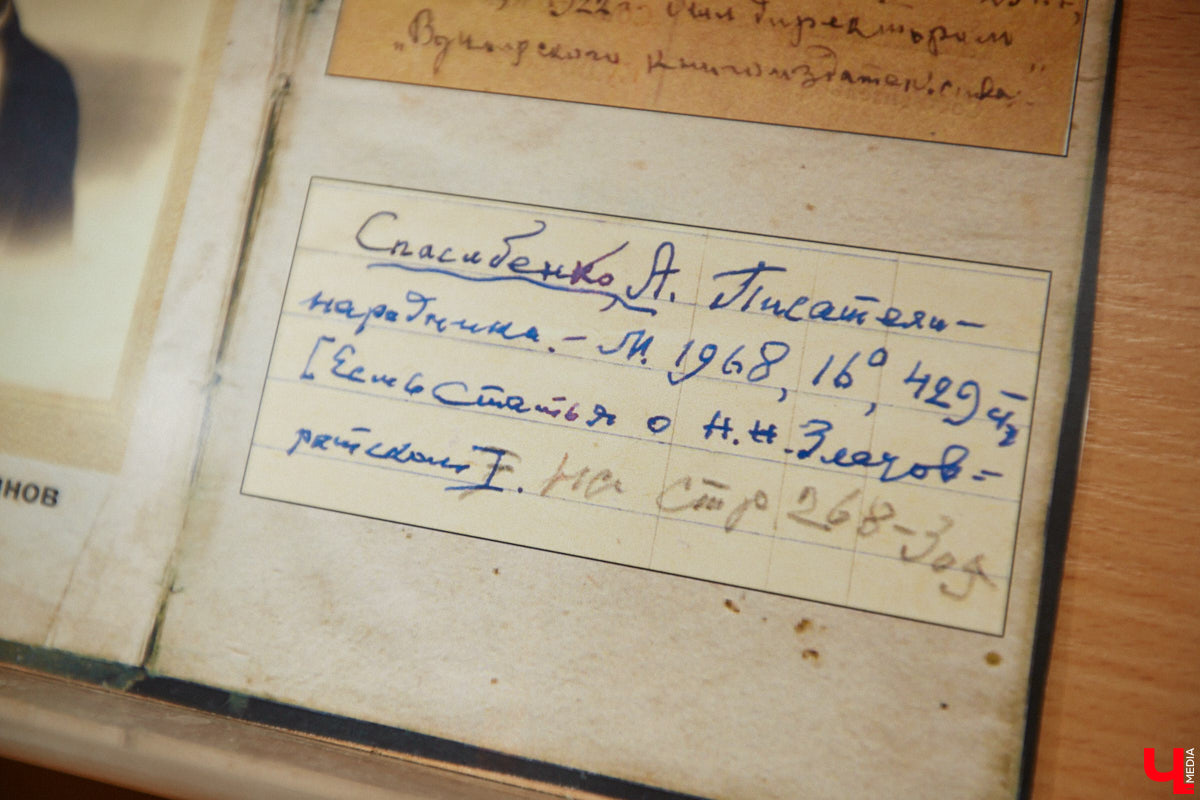 1922 г. был директором
„Владимирского книгоиздательства".
Спасибенко А. Писатели-
народники. – М. 1968, 16°, 429 ч,
[Есть статья о Н.Н. Златов=
ратском]. на стр 268-
нов
Ч MEDIA